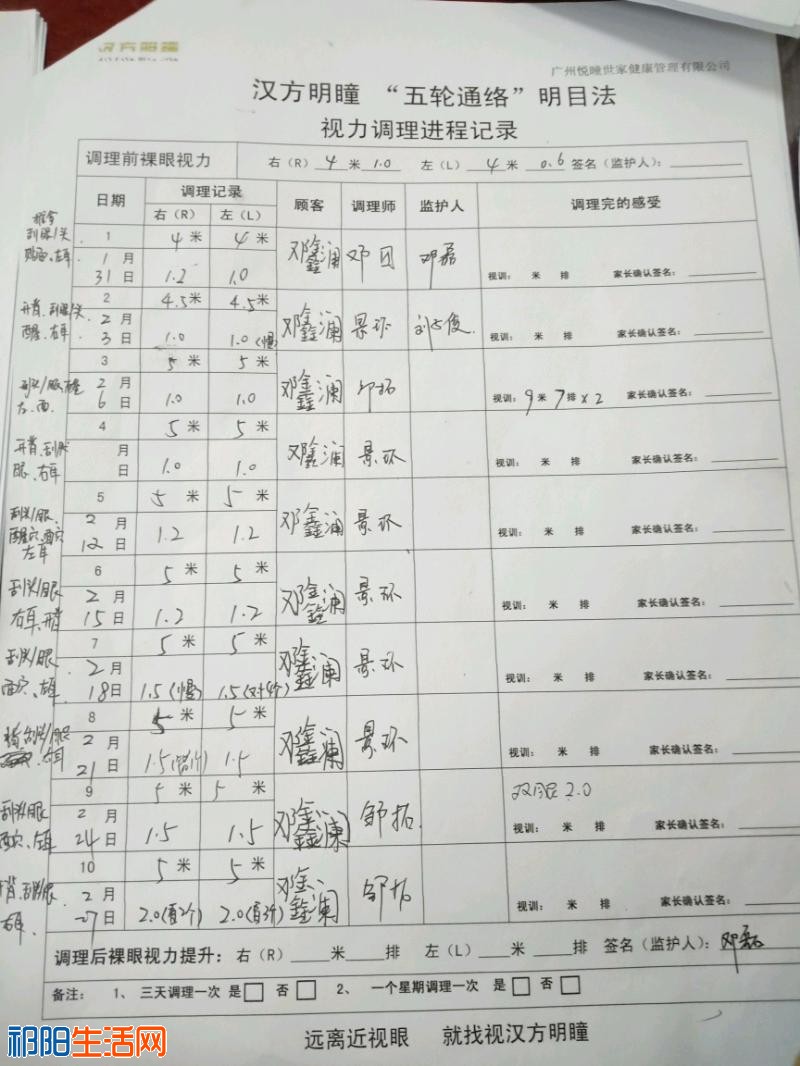 汉方明瞳
广州悦瞳世家健康管理有限公司
汉方明瞳 “五轮通络”明目法
视力调理进程记录
调理前裸眼视力 右(R) 4 米 1.0 左(L) 4 米 0.6 签名(监护人):
日期 调理记录 顾客 调理师 监护人 调理完的感受
右(R) 左(L)
1 4 米 4 米 邓鑫澜 邓团 邓磊
1 月 31 日 1.2 1.0 视训: 米 排 家长确认签名:
2 4.5 米 4.5 米 邓鑫澜 景环
2 月 3 日 1.0 1.0(慢) 视训: 米 排 家长确认签名:
3 5 米 5 米 邓鑫澜 邹拓
2 月 6 日 1.0 1.0 视训: 9 米 7 排 x2 家长确认签名:
4 5 米 5 米 邓鑫澜 景环
月 日 1.0 1.0 视训: 米 排 家长确认签名:
眼、右耳
5 5 米 5 米 邓鑫澜 景环
2 月 12 日 1.2 1.2 视训: 米 排 家长确认签名:
左耳
6 5 米 5 米 邓鑫澜 景环
2 月 15 日 1.2 1.2 视训: 米 排 家长确认签名:
7 5 米 5 米 邓鑫澜 景环
2 月 18 日 1.5(慢) 1.5 视训: 米 排 家长确认签名:
8 5 米 5 米 邓鑫澜 景环
2 月 21 日 1.5 1.5 视训: 米 排 家长确认签名:
9 5 米 5 米 邓鑫澜 邹拓 双眼2.0
2 月 24 日 1.5 1.5 视训: 米 排 家长确认签名:
10 5 米 5 米 邓鑫澜 邹拓
2 月 27 日 2.0(有2个) 2.0 视训: 米 排 家长确认签名:
右耳
调理后裸眼视力提升: 右(R) 米 排 左(L) 米 排 签名(监护人): 邓磊
备注: 1、三天调理一次 是 否 2、一个星期调理一次 是 否
远离近视眼 就找视汉方明瞳
祁阳生活网